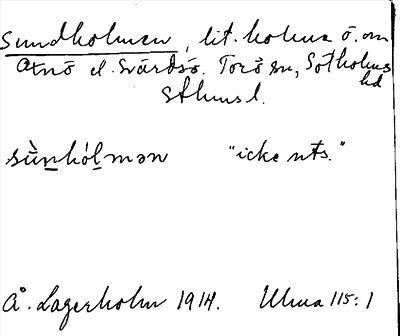 Sundholmen, lit. holme ö. om
Oxnö el. Svärdsö. Torö sn, Sotholms
hd
Sthmsl.
sùnhólmən "icke uts."
Å. Lagerholm 1914. Ulma 115:1